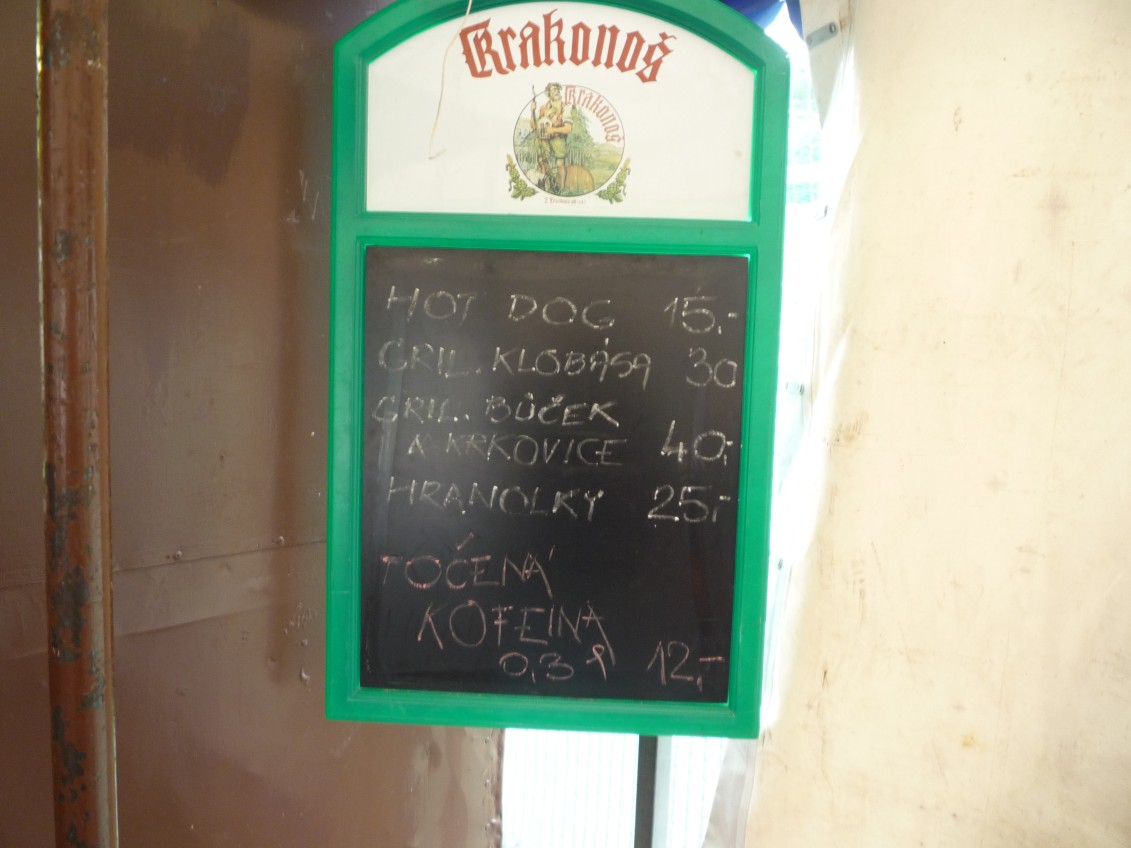 Krakonoš
Krakonoš
HOT DOG 15,-
GRIL. KLOBÁSA 30
GRIL. BŮČEK
A KRKOVICE 40,-
HRANOLKY 25,-
TOČENÁ
KOFEINA
0,3 l 12,-